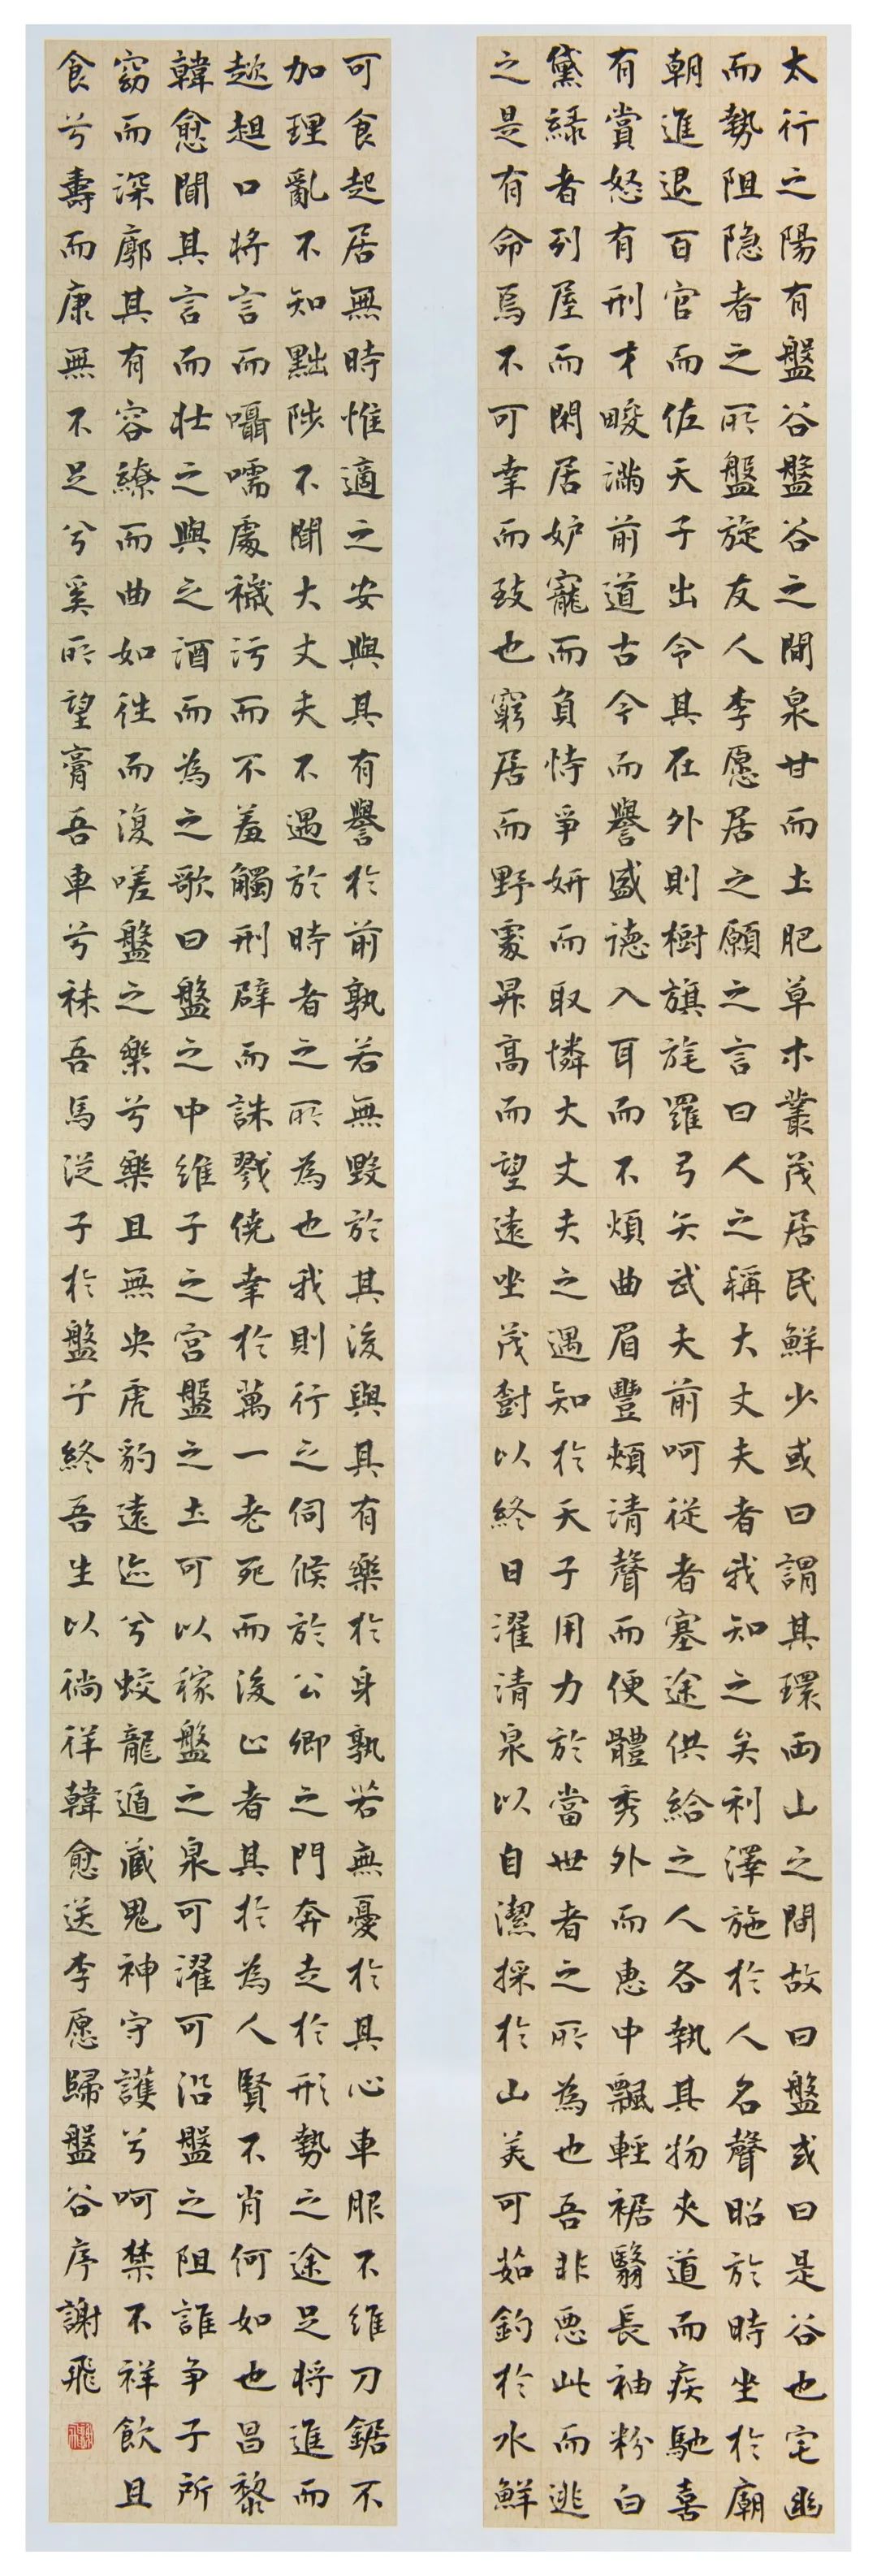 太行之陽有盤谷盤谷之間泉甘而土肥草木叢茂居民鮮少或曰謂其環兩山之間故曰盤或曰是谷也宅幽
而勢阻隐者之所盤旋友人李愿居之願之言曰人之稱大丈夫者我知之矣利澤施於人名聲昭於時坐於廟
朝進退百官而佐天子出令其在外則樹旗旄羅弓矢武夫前呵從者塞途供給之人各執其物夾道而疾馳喜
有賞怒有刑才畯滿前道古今而譽盛德入耳而不煩曲眉豐頰清聲而便體秀外而惠中飄輕裾翳長袖粉白
黛綠者列屋而閑居妒寵而負恃爭妍而取憐大丈夫之遇知於天子用力於當世者之所為也吾非惡此而逃
之是有命焉不可幸而致也窮居而野處昇高而望遠坐茂樹以終日濯清泉以自潔採於山美可茹釣於水鮮
可食起居無時惟適之安與其有譽於前孰若無毀於其後與其有樂於身孰若無憂於其心車服不維刀鋸不
加理亂不知黜陟不聞大丈夫不遇於時者之所為也我則行之伺候於公卿之門奔走於形勢之途足將進而
趑趄口將言而囁嚅處穢污而不羞觸刑辟而誅戮僥幸於萬一老死而後止者其於為人賢不肖何如也昌黎
韓愈聞其言而壯之與之酒而為之歌曰盤之中維子之宮盤之土可以稼盤之泉可濯可沿盤之阻誰爭子所
窈而深廓其有容繚而曲如往而復嗟盤之樂兮樂且無央虎豹遠迹兮蛟龍遁藏鬼神守護兮呵禁不祥飲且
食兮壽而康無不足兮奚所望膏吾車兮秣吾馬從子於盤兮終吾生以徜徉韓愈送李愿歸盤谷序謝飛